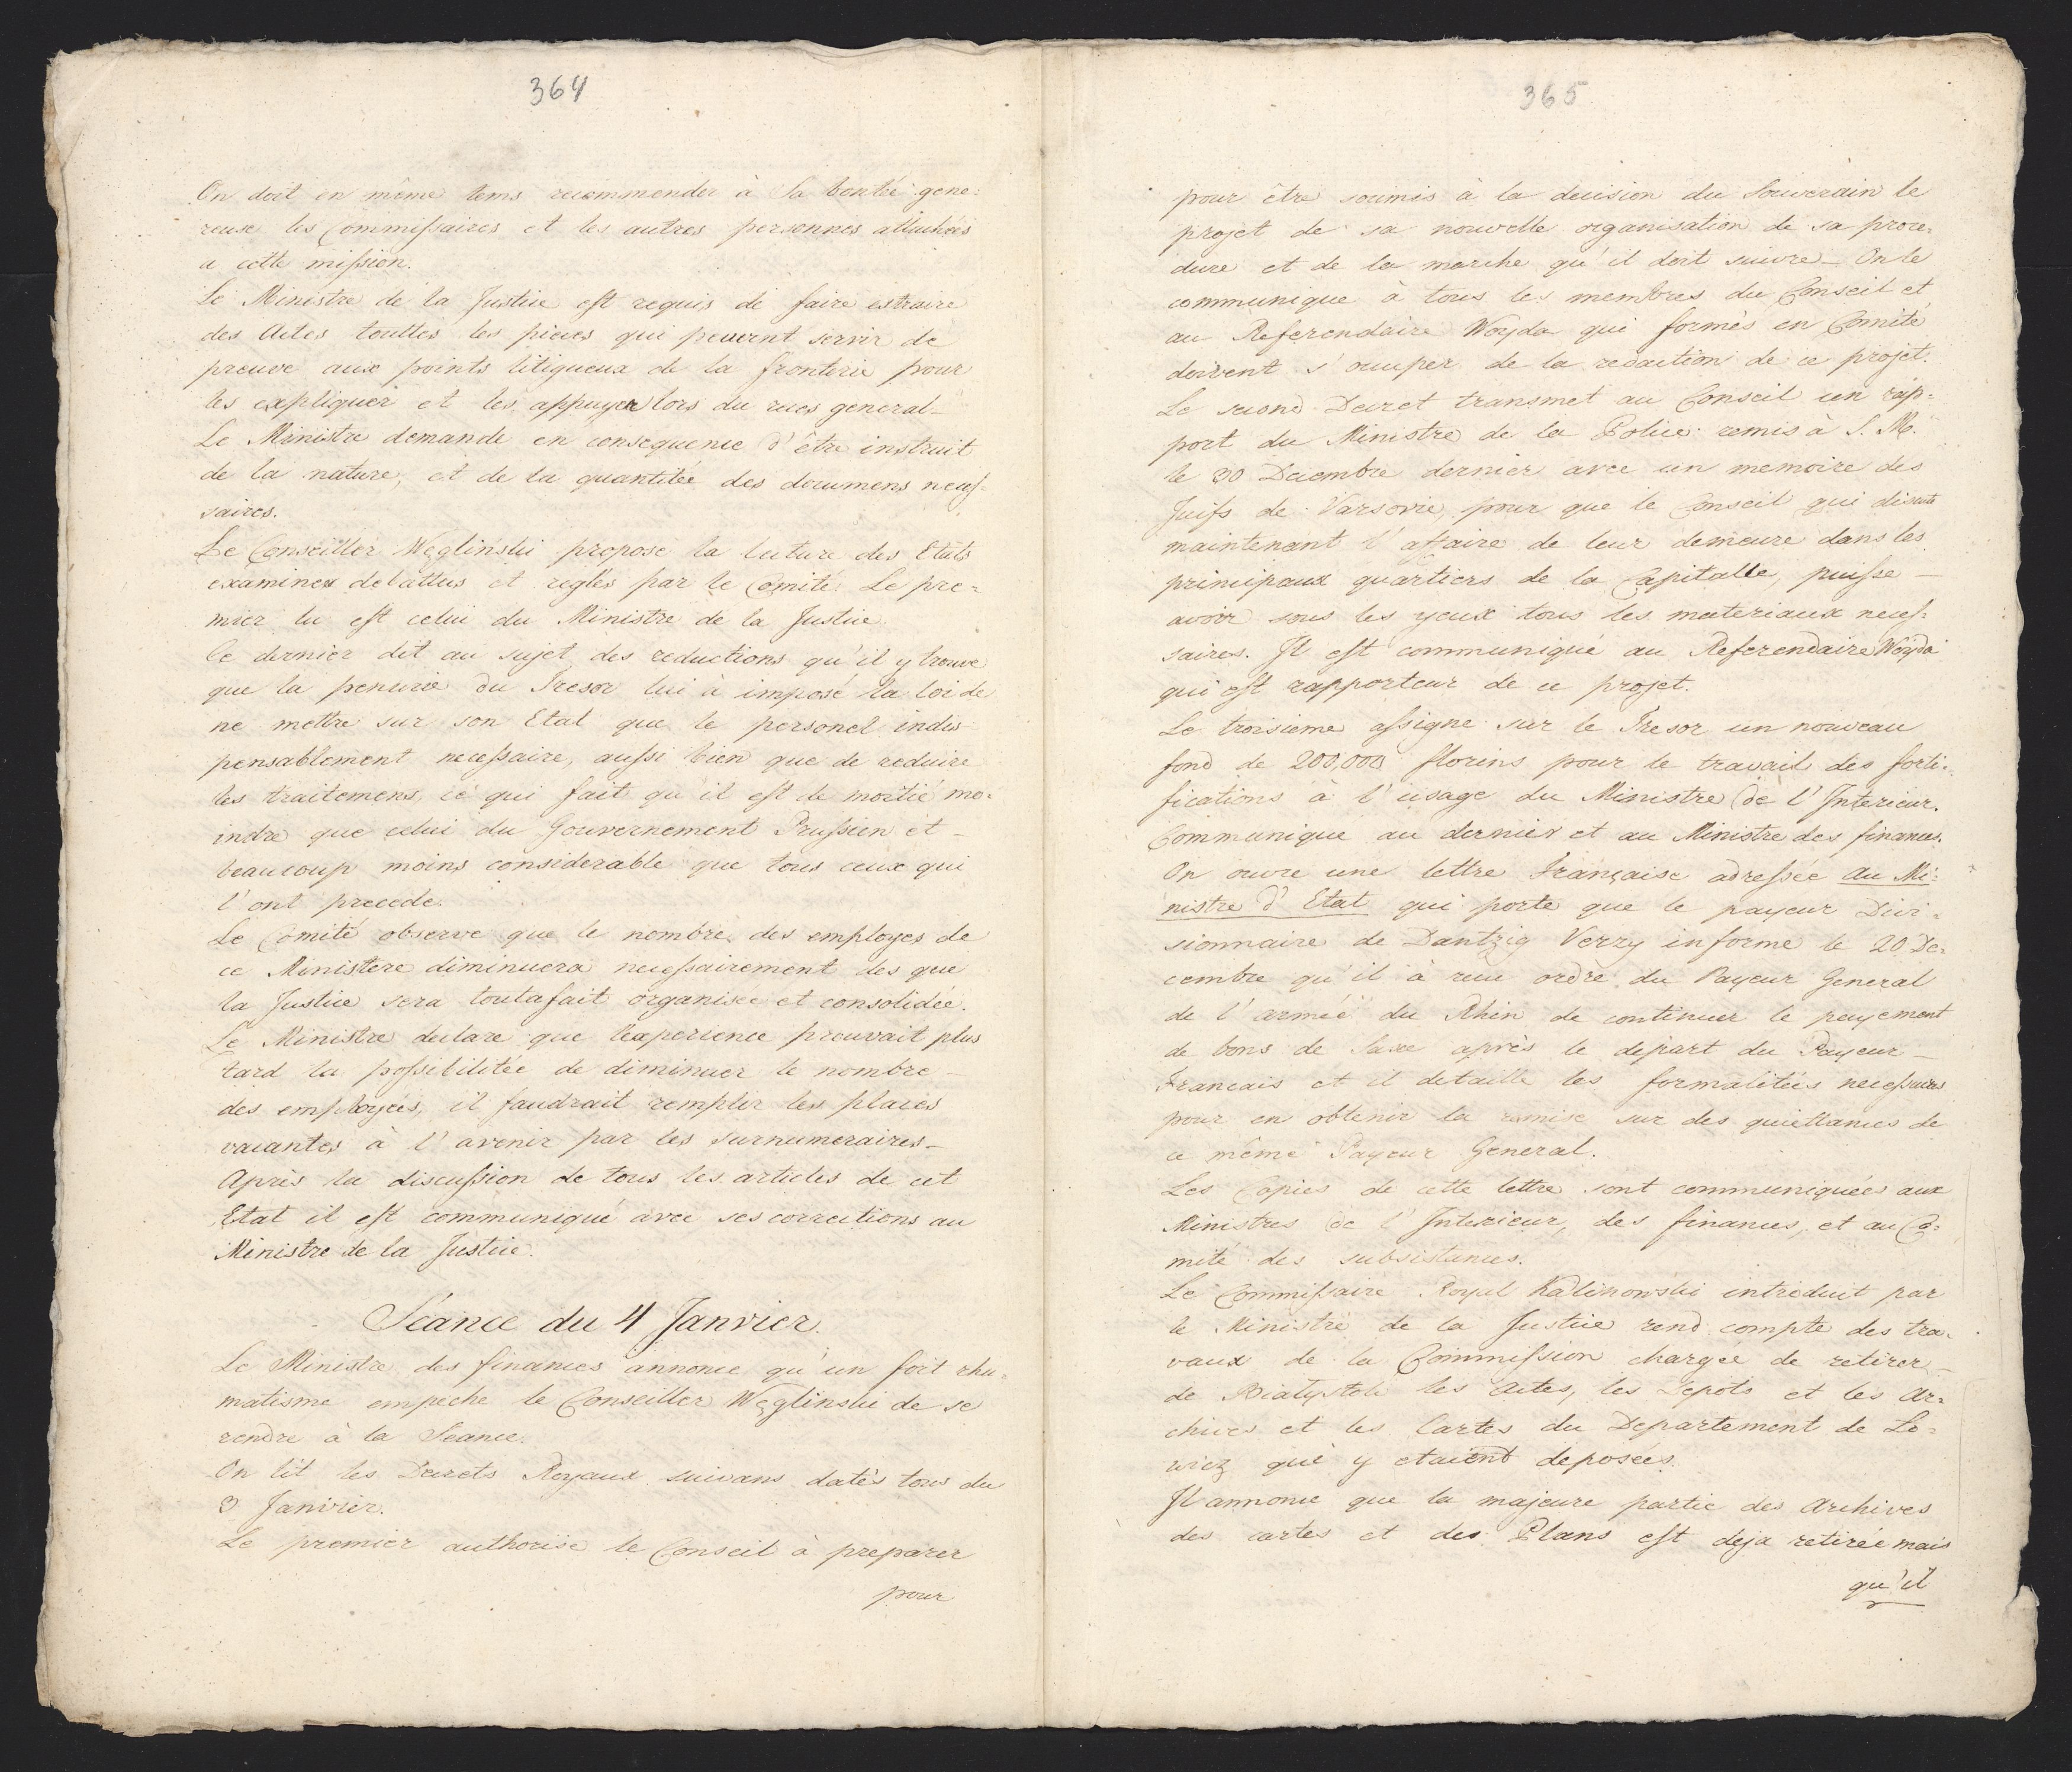 364
On doit en même tems recommender à Sa bontée gene:
reuse les Commissaires et les autres personnes attachées
a cette mission.
Le Ministre de la Justice est requis de faire extraire
des Actes touttes les pieces qui peuvent servir de
preuve aux points litigueux de la fronterie pour
les expliquer et les appuyer lors du reces general_
Le Ministre demande en consequence d'être instruit
de la nature, et de la quantitée des documens neces-
saires.
Le Conseiller Węgliński propose la lecture des Etats
examinex debattus et reglés par le Comité. Le pre=
mier lu est celui du Ministre de la Justice
Ce dernier dit au sujet des reductions qu'il y trouve
que la penurie du Tresor lui à imposé la loi de
ne mettre sur son Etat que le personel indis
pensablement necessaire, aussi bien que de reduire
les traitemens, ce qui fait qu'il est de moitié mo-
indre que celui du Gouvernement Prussien et_
beaucoup moins considerable que tous ceux qui
l'ont precede.
Le Comité observe que le nombre des employes de
ce Ministere diminuera necessairement des que
la Justice sera toutafait organisée et consolidée.
Le Ministre declare que l'experience prouvait plus
tard la possibilitée de diminuer le nombre_
des employées, il faudrait remplir les places
vacantes à l'avenir par les surnumeraires_
Après la discussion de tous les articles de cet
Etat il est communiqué avec ses corrections au
Ministre de la Justice.
Séance du 4 Janvier.
Le Ministre des finances annonce qu'un fort rhu-
matisme empeche le Conseiller Węglinski de se
rendre à la Seance.
On lit les Decrets Royaux suivans datés tous du
3 Janvier.
Le premier authorise le Conseil à preparer
pour
365
pour être soumis à la decision du Souverain le
projet de sa nouvelle organisation de sa proce=
dure et de la marche qu'il doit suivre_ On le
communique à tous les membres du Conseil et
au Referendaire Woyda qui formés en Comité
doivent s'occuper de la redaction de ce projet.
Le second Decret transmet au Conseil un rap=
port du Ministre de la Police remis à S. M.
le 30 Decembre dernier avec un memoire des
Juifs de Varsovie, pour que le Conseil qui discute
maintenant l'affaire de leur demeure dans les
principaux quartiers de la Capitalle, puisse_
avoir sous les yeux tous les materiaux neces-
saires. Il est communiqué au Referendaire Woyda
qui est rapporteur de ce projet.
Le troisieme assigne sur le Tresor un nouveau
fond de 200,000 florins pour le travail des forti-
fications à l'usage du Ministre de l'Interieur.
Communique au dernier et au Ministre des finances.
On ouvre une lettre Française adressée au Mi:
nistre d'Etat qui porte que le payeur Divi=
sionnaire de Dantzig Verzy informe le 20 De=
cembre qu'il à recu ordre du Payeur General
de l'armée du Rhin de continuer le payement
de bons de Saxe après le depart du Payeur_
Francais et il detaille les formalitées necessaires
pour en obtenir la remise sur des quiettances de
ce même Payeur General.
Les Copies de cette lettre sont communiquées aux
Ministres de l'Interieur, des finances, et au Co=
mité des subsistances.
Le Commissaire Royal Kalinowski introduit par
le Ministre de la Justice rend compte des tra-
vaux de la Commission chargée de retirer_
de Bialystok les Actes, les Depots et les Ar=
chives et les Cartes du Departement de Lo=
wicz qui y etaient deposées.
Il annonce que la majeure partie des Archives
des cartes et des Plans est deja retirée mais
qu'il